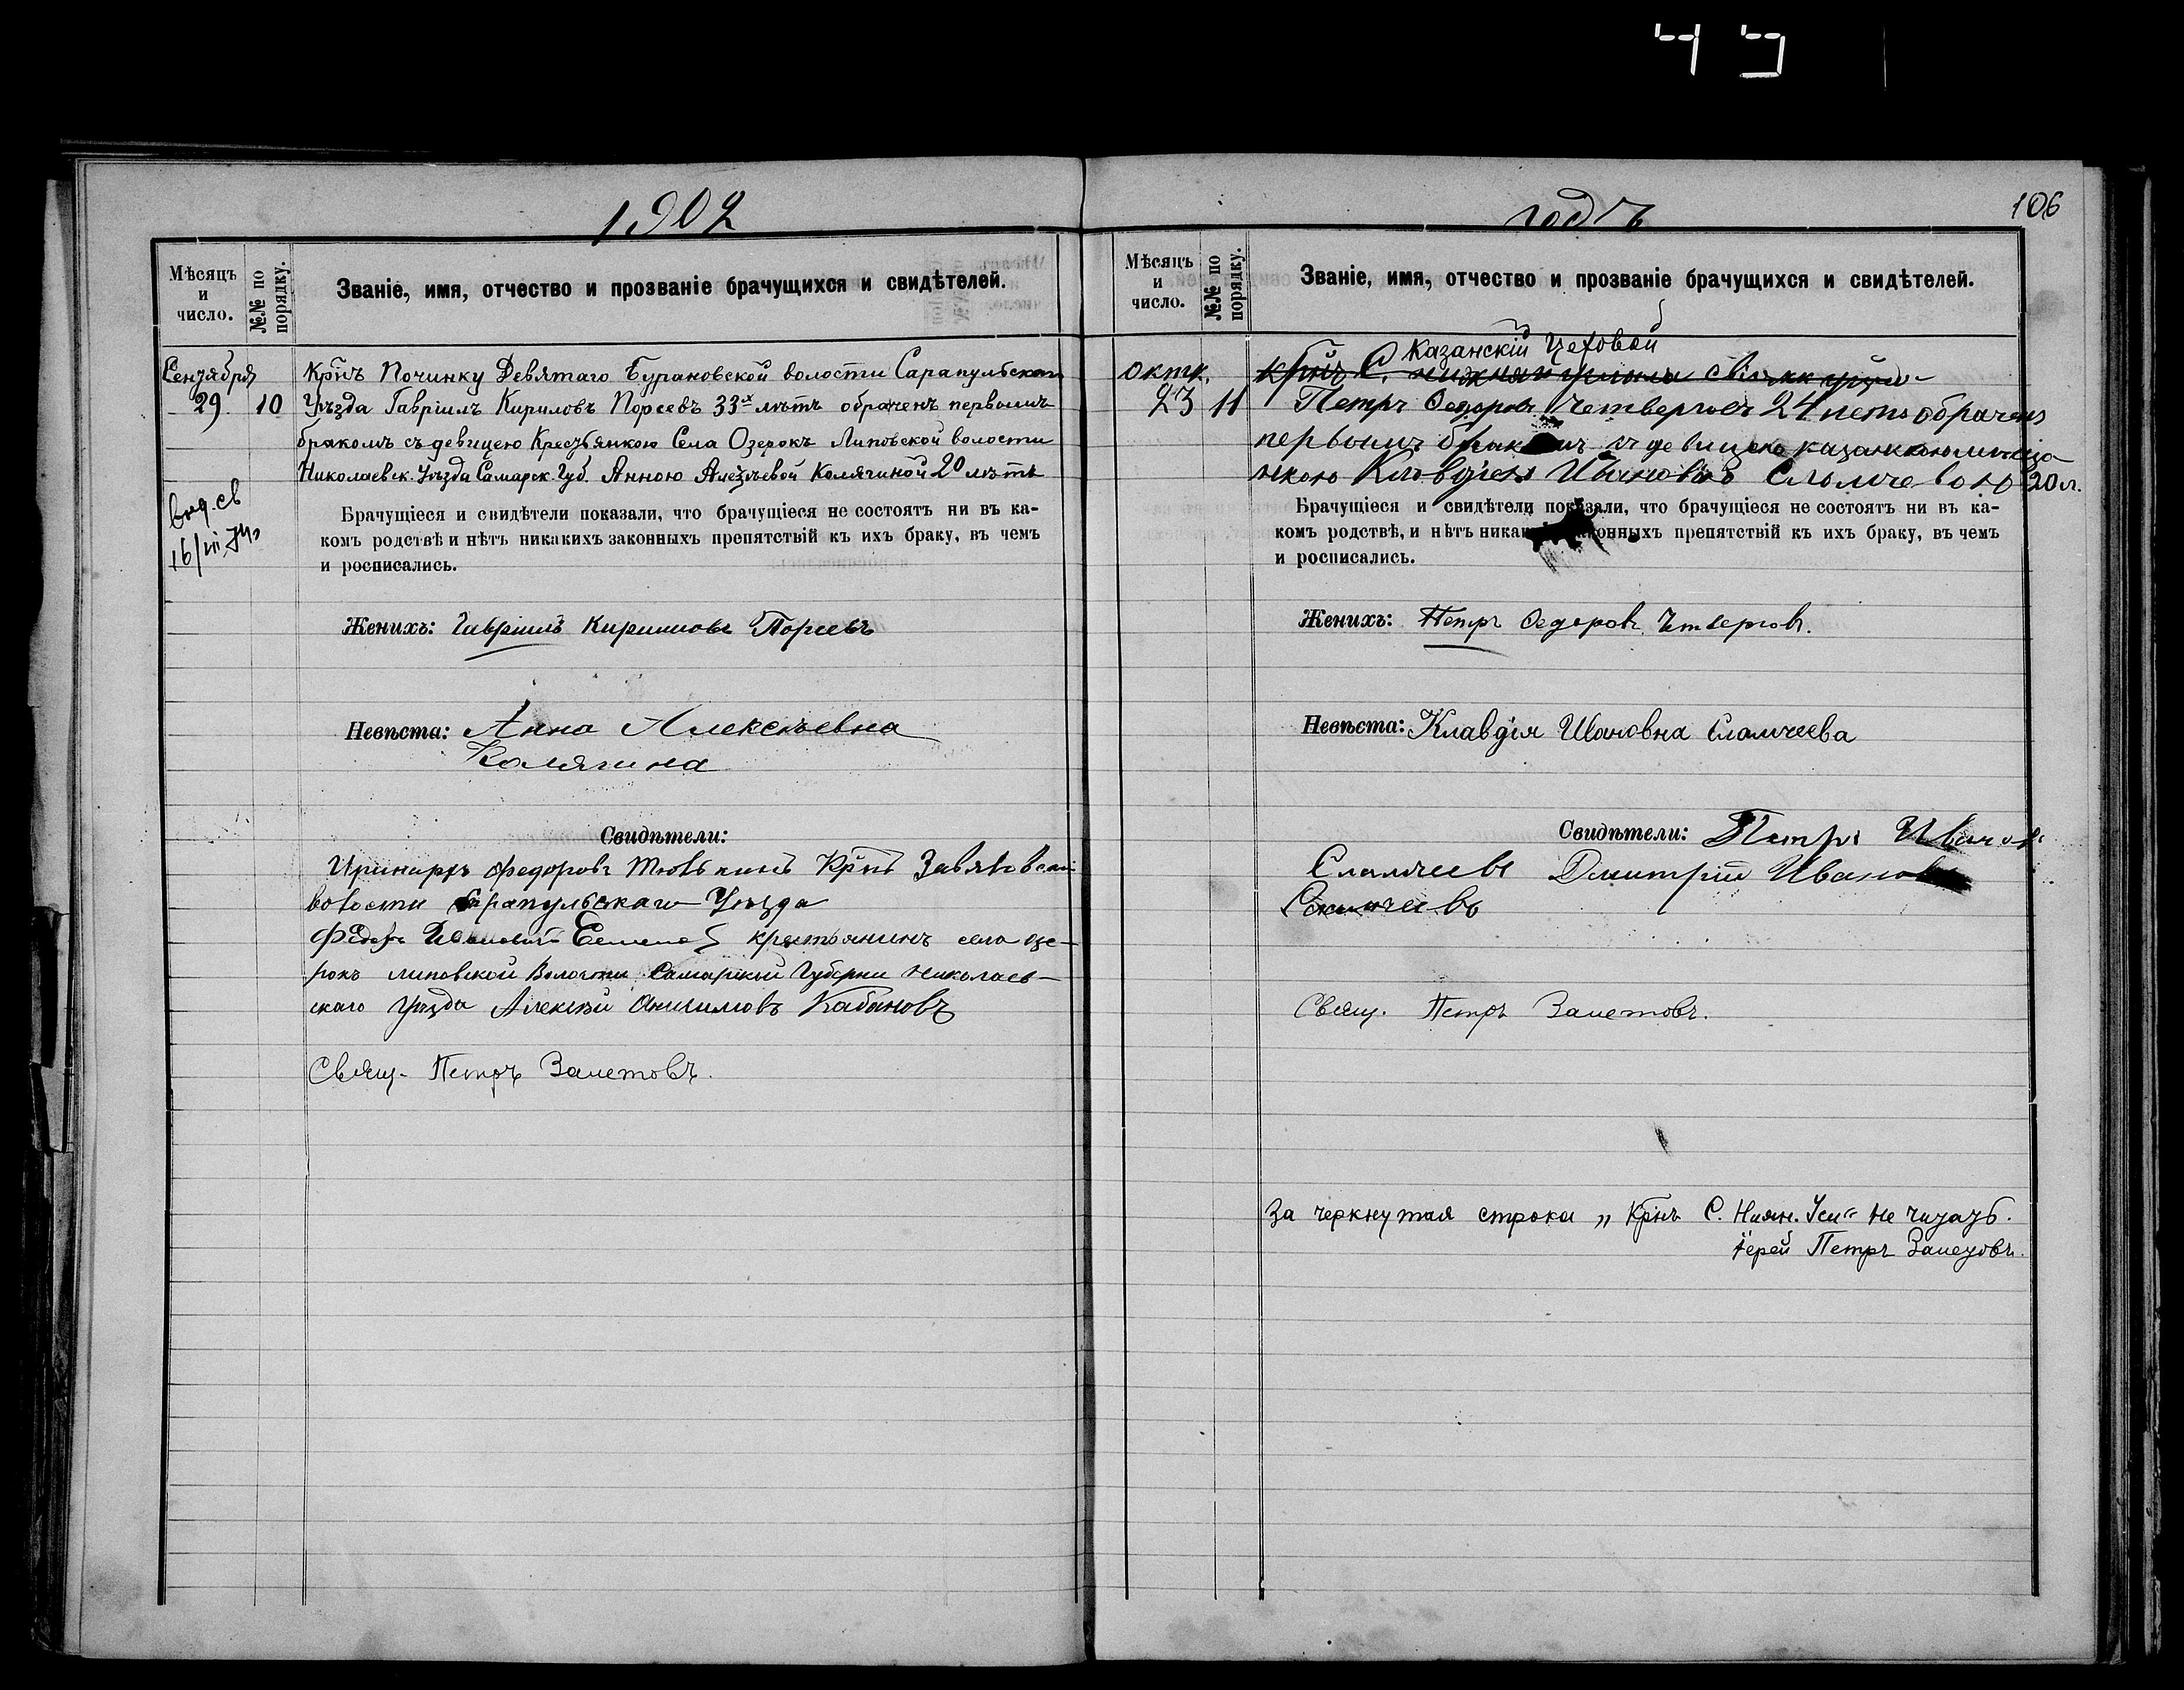 1902
Мѣсяцъ и число.
№№ по порядку.
Званіе, имя, отчество и прозваніе брачущихся и свидѣтелей.
Сентября
29. 10
Крн̃ъ Починку Девятаго Бурановской волости Сарапульскаго
Уѣзда Гавріилъ Кириловъ Порсевъ 33х лѣтъ обраченъ первымъ
бракомъ съ девицею Крестьянкою Села Озерокъ Липовской волости
Николаевск. Уѣзда Самарск. Губ. Анною Алексѣевой Колягиной 20 лѣтъ
выд. св
16/III
Брачущіеся и свидѣтели показали, что брачущіеся не состоятъ ни въ ка-
комъ родствѣ и нѣтъ никакихъ законныхъ препятствій къ ихъ браку, въ чемъ
и росписались.
Женихъ: Гавріилъ Кирилловъ Порсевъ
Невѣста: Анна Алексѣевна
Колягина
Свидѣтели:
Федоровъ Крнъ Завяловской
волости Сарапульскаго Уѣзда
Федоръ крестьянинъ села озе-
рокъ липовской Волости Самарской Губерни Николаев-
скаго Уѣзда Алексѣй Анисимовъ Кабановъ
Свящ. Петръ Заметовъ.
годъ
106
Мѣсяцъ и число.
№№ по порядку.
Званіе, имя, отчество и прозваніе брачущихся и свидѣтелей.
Казанскій Цеховой
октя.
крнъ С.
23 11
Петръ Федоровъ Четверговъ 24 летъ обраченъ
первымъ бракомъ съ девицею казанскою меща
нкою Клавдіею Ивановъ Сламчевою 20 л.
Брачущіеся и свидѣтели показали, что брачущіеся не состоятъ ни въ ка-
комъ родствѣ, и нѣтъ никакихъ законныхъ препятствій къ ихъ браку, въ чемъ
и росписались.
Женихъ: Петръ Федоровъ Четверговъ.
Невѣста: Клавдія Ивановна Сламчеева
Свидѣтели: Петръ Иванов
Сламчеевъ Дмитрій Иванов
Сламчеевъ
Свящ. Петръ Заметовъ.
За черкнутая строка „Крнъ С. Нижн. Усл“ не читать.
Іерей Петръ Заметовъ.